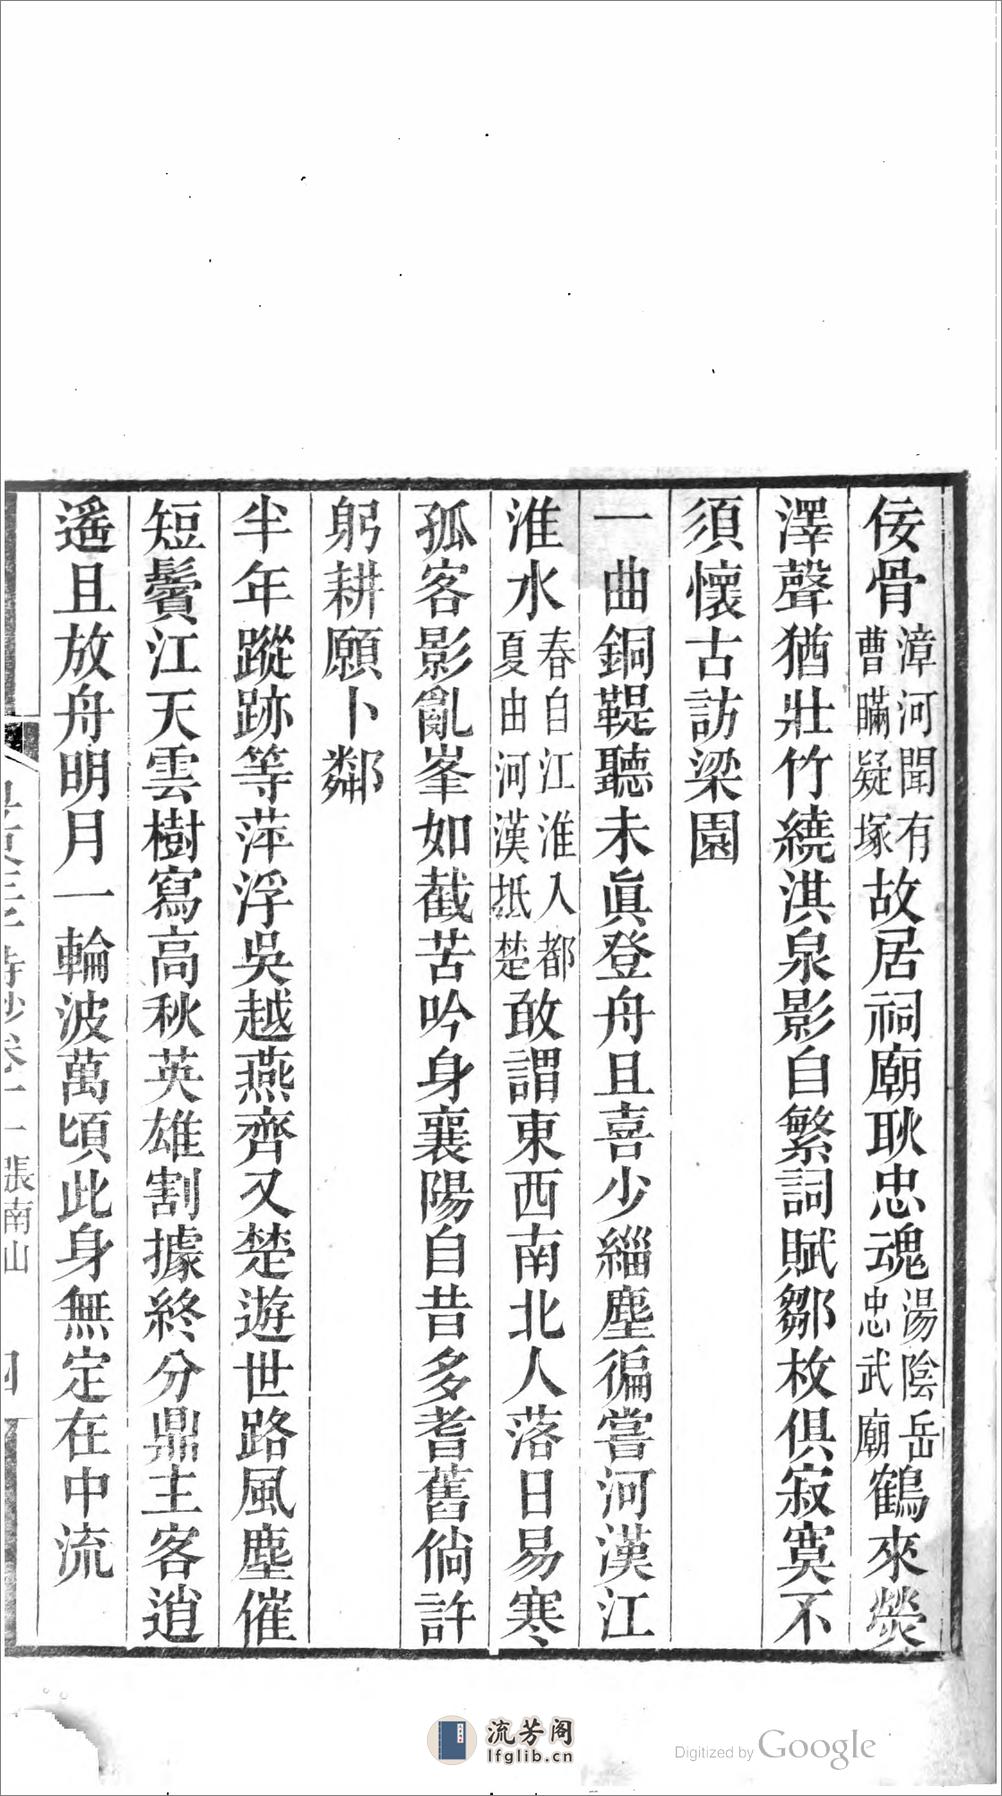 佞骨漳河聞有曹瞞疑塚故居祠廟耿忠魂湯陰岳忠武廟鶴來熒
澤聲猶壯竹繞淇泉影自繁詞賦鄒枚俱寂寞不
須懷古訪梁園
一曲銅鞮聽未眞登舟且喜少緇塵徧嘗河漢江
淮水春自江淮入都夏由河漢抵楚敢謂東西南北人落日易寒
孤客影亂峯如截苦吟身襄陽自昔多耆舊倘許
躬耕願卜鄰
半年蹤跡等萍浮吳越燕齊又楚遊世路風塵催
短鬢江天雲樹寫高秋英雄割據終分鼎主客逍
遙且放舟明月一輪波萬頃此身無定在中流
張南山
四
流芳阁
lfglib.cn
Digitized by Google